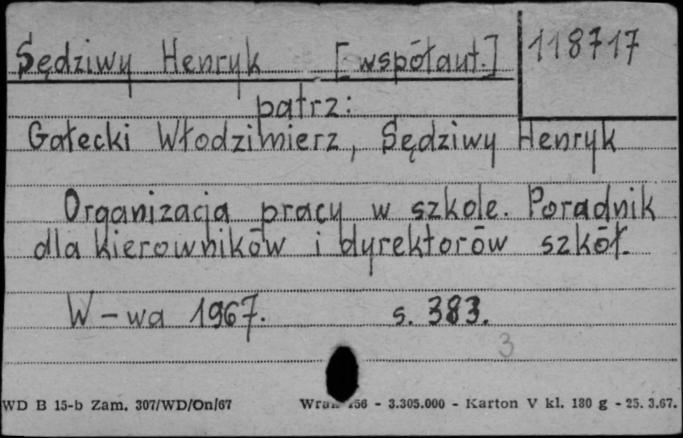 Sędziwy Henryk [współaut.]
118717
patrz:
Gałecki Włodzimierz, Sędziwy Henryk
Organizacja pracy w szkole. Poradnik
dla kierowników i dyrektorów szkół.
W-wa 1967. s. 383.
3
WD B 15-b Zam. 307/WD/On/67 - 3.305.000 - Karton V kl. 180 g - 25. 3.67.